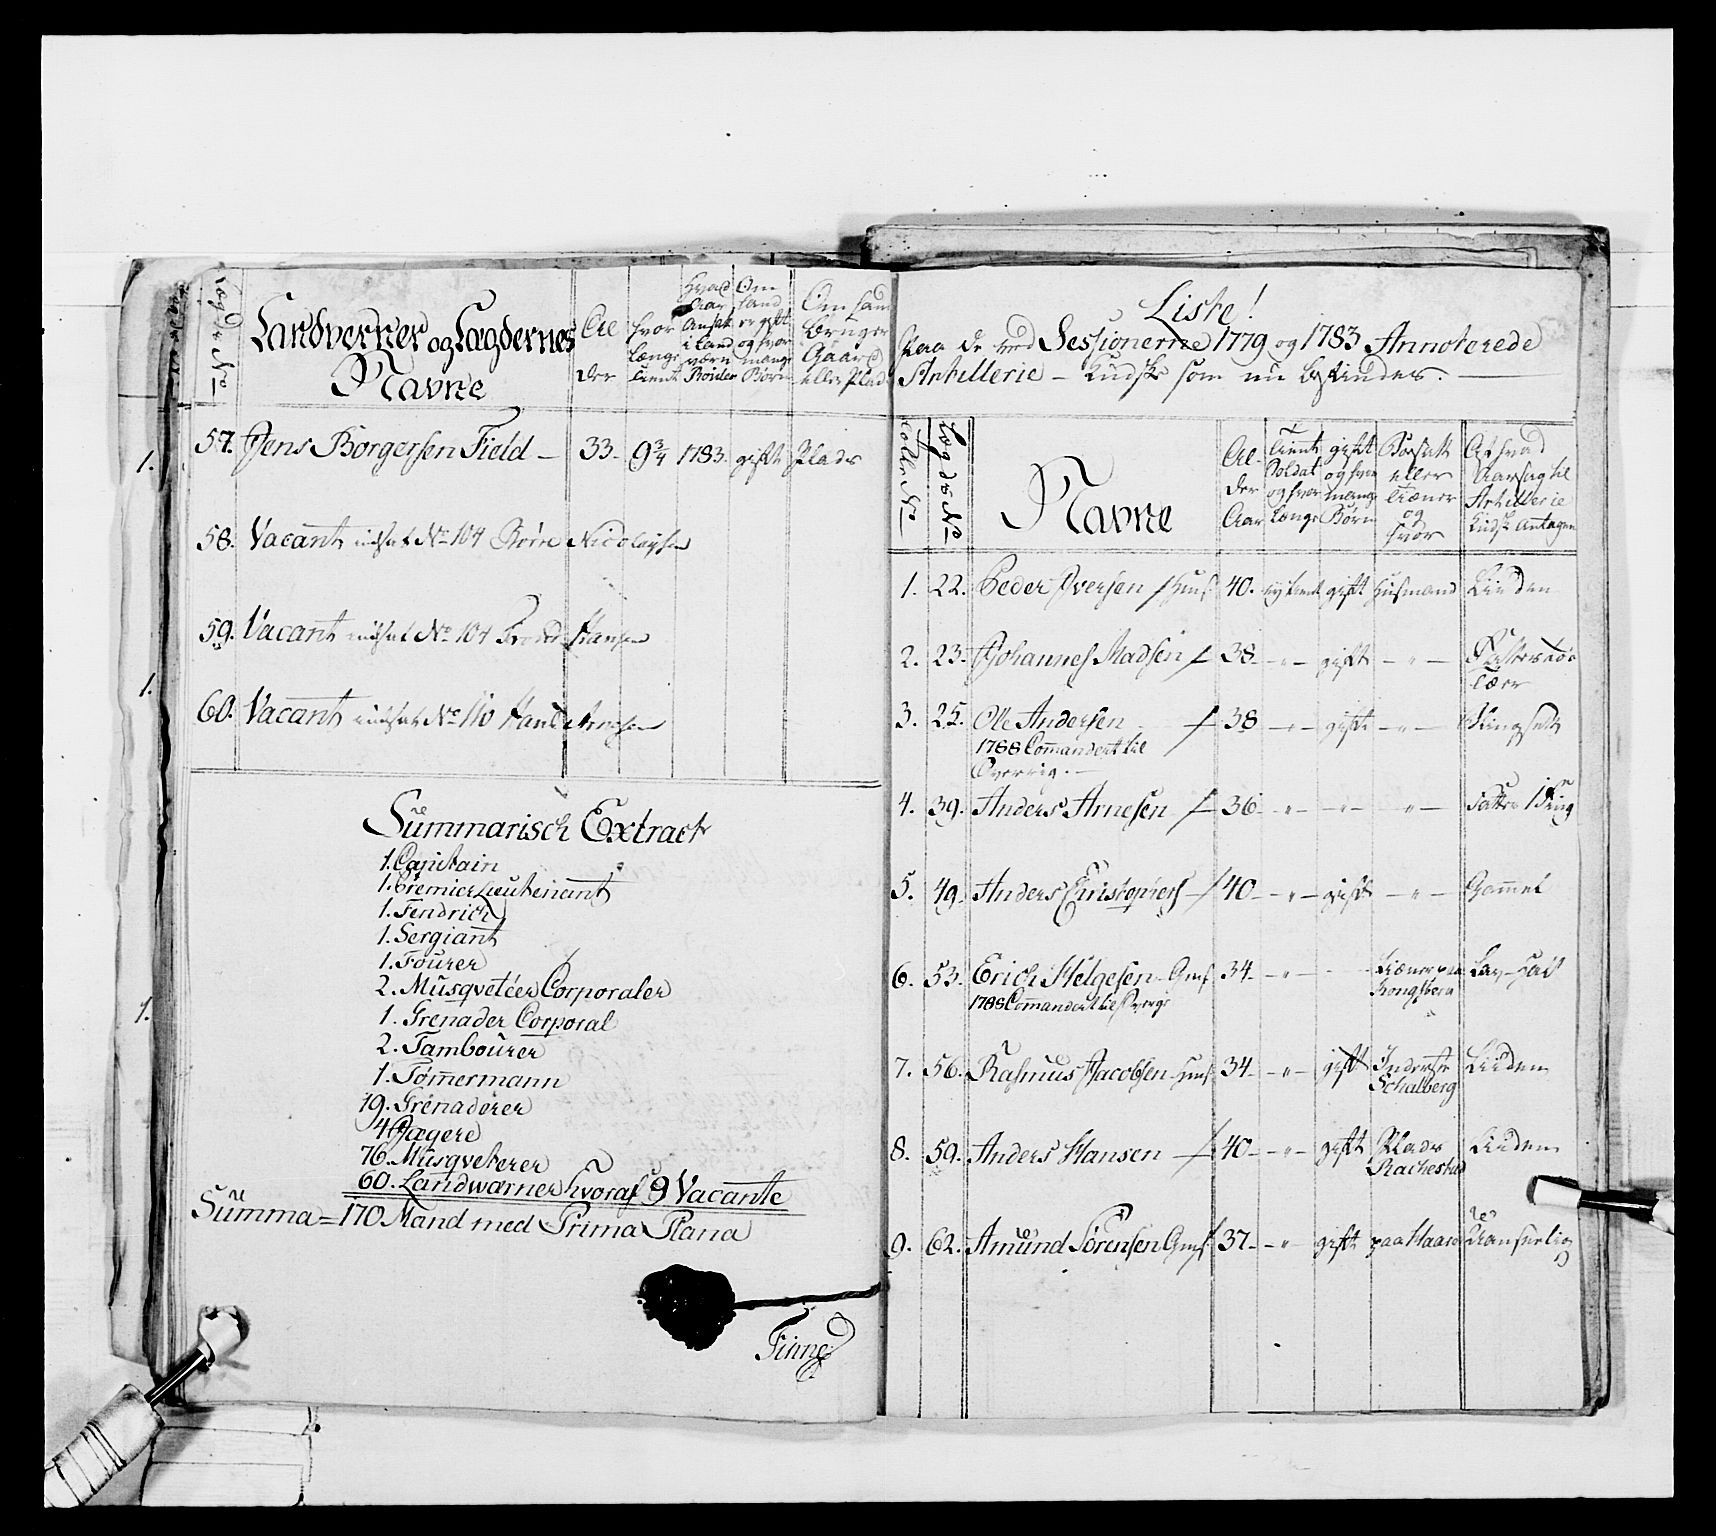 Lægds No
Landverner og Lægdernes
Navne
Al
der
hvor
længe
tient
Hvad
Aar
Ansat
i Land
værn
Rulder
Om
hand
er gift
og hvor
mange
Børn
Om hand
bruger
Gaard
eller Plads
57. Jens Borgersen Field – 33. 9¾ 1783. gift Plads
1.
58. Vacant indsat No 104 Nicolaysen
59. Vacant indsat No 104 Hansen
1.
60. Vacant indsat No 110
Summarisch Extract
1. Capitain
1. Premier Lieutenant
1. Fendrich
1. Sergiant
1. Fourer
2. Musqveteer Corporaler
1.
1. Grenader Corporal
2. Tambourer
1. Tømmermann
19. Grenaderer
4 Jægere
76. Musqveterer
60. Landwærner hvoraf 9 Vacante
Summa = 170 Mand med Prima Plana
Finne
Liste!
Paa de ved Sessionerne 1779 og 1783 Annoterede
Artillerie – Kudske som nu befindes. –
Rolle No
Lægds No
Navne
Al-
der
Aar
Tient
Soldat
og hvor
længe
gift
og hvor
mange
Børn
Bosatt
eller
tiæner
og
hvor
Af hvad
Aarsag til
Artillerie
Kudsk Antagen
1. 22. Peder Iversen 40. ey tient gift Huusmand Liiden
2. 23. Johannes Madsen 38 – " – gift – " –
3. 25. Ole Andersen 38 – " – gift – " –
1788 Commandert til
4. 39. Anders Arnesen 36 – " – – " – – " –
5. 49. Anders Christophers 40 – " – gift – " – Gammel
6. 53. Erich Helgesen 34 – " – Tiæner paa
Kongsberg
1788 Commandert til
7. 56. Rasmus Jacobsen 34 – " – gift Inderste Liiden
Schalberg
8. 59. Anders Hansen 40 – " – gift Plads Liiden
Rachestad
9. 62. Amund Sørensen 37 – " – gift paa